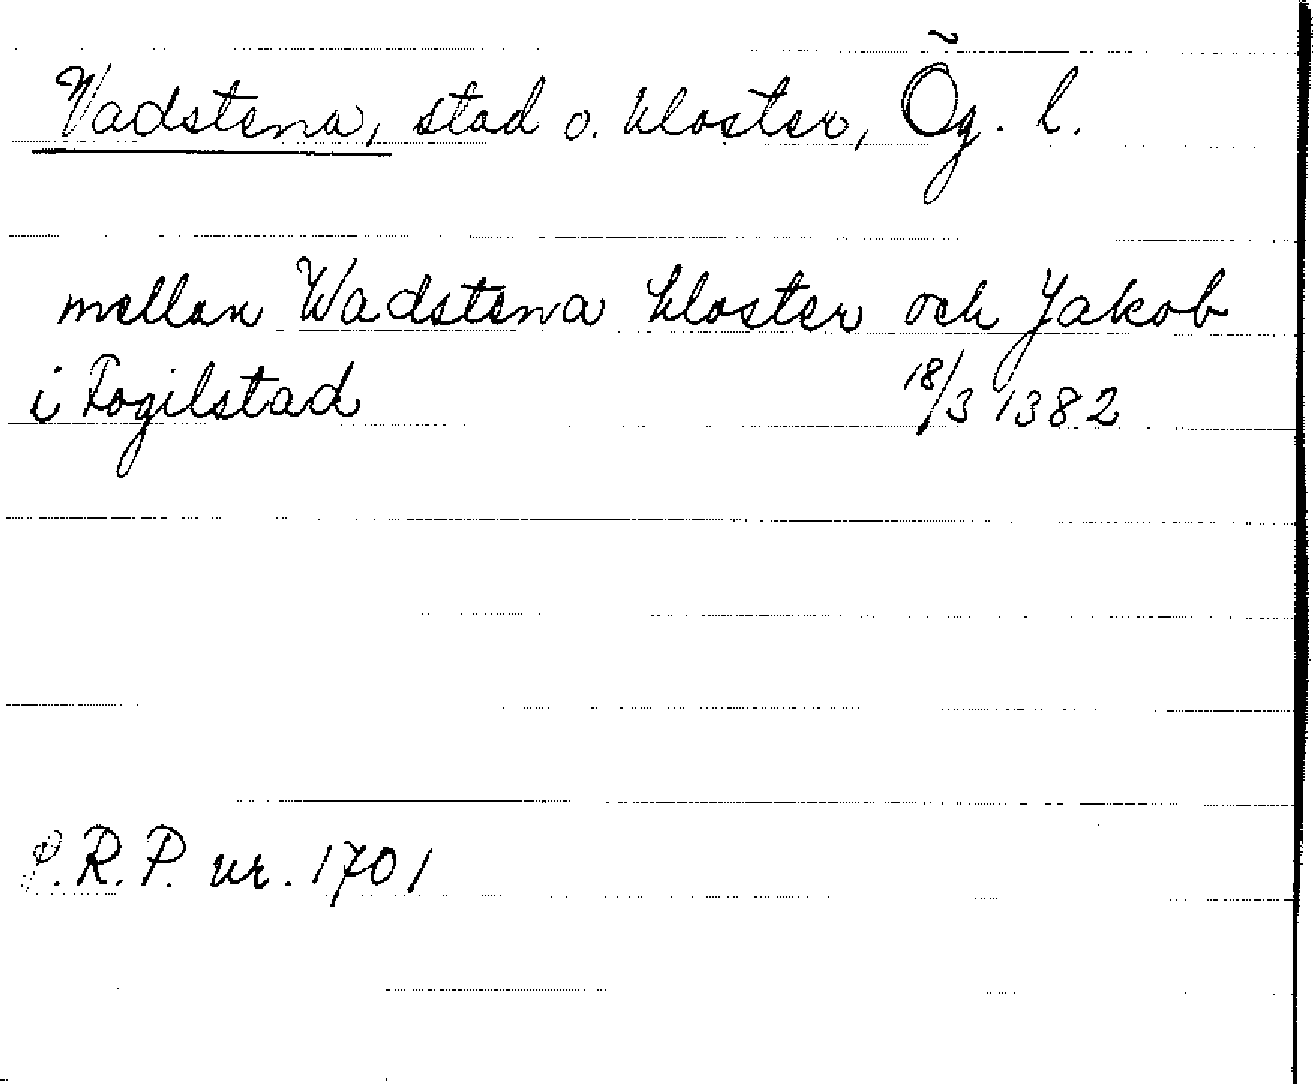 Vadstena, stad o. kloster, Ög. l.
mellan Wadstena kloster och Jakob
i Fogilstad 18/3 1382
P.R.P. nr. 1701